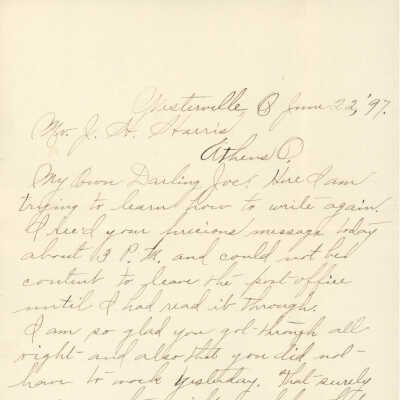 Westerville, O June 22, '97.
Mr. J. H. Harris,
Athens O.
My Own Darling Joe: Here I am
trying to learn how to write again.
I rec'd your precious message today
about 3 P.M. and could not be
content to leave the post office
until I had read it through.
I am so glad you got through all
right and also that you did not
have to work yesterday. That surely